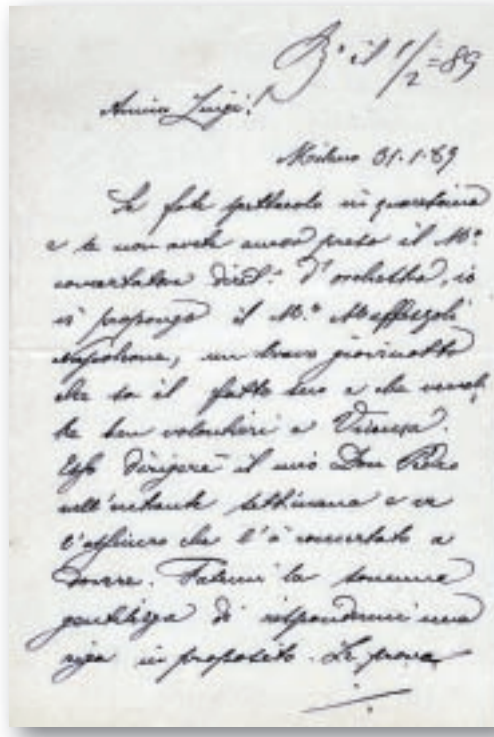 R. il 1/2=89
Amico Luigi!
Milano 31.1.89
Se fate spettacolo in quaresima
e se non avete ancora preso il M.º
concertatore dirett.e d'orchestra, io
vi propongo il M.º Maffezzoli
Napoleone, un bravo giovinotto
che sa il fatto suo e che
be ben volentieri a Vicenza.
Egli dirigerà il mio Don Pedro
nell'entrante settimana e ve
l'assicuro che l'à concertato a
dovere. Fatemi la somma
gentilezza di rispondermi una
riga in proposito. Le prove